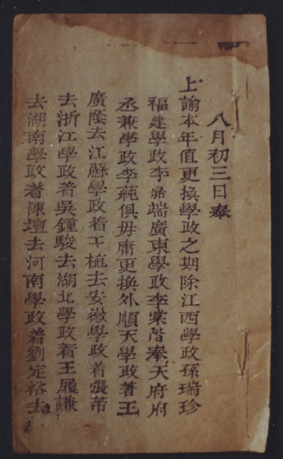 八月初三日奉
上諭本年值更換學政之期除江西學政孫瑞珍
福建學政李嘉端廣東學政李棠階奉天府府
丞兼學政李蒓俱毋庸更換外順天學政著王
廣廕去江蘇學政着王植去安徽學政着張芾
去浙江學政着吳鍾駿去湖北學政着王履謙
去湖南學政着陳壇去河南學政着劉定裕去